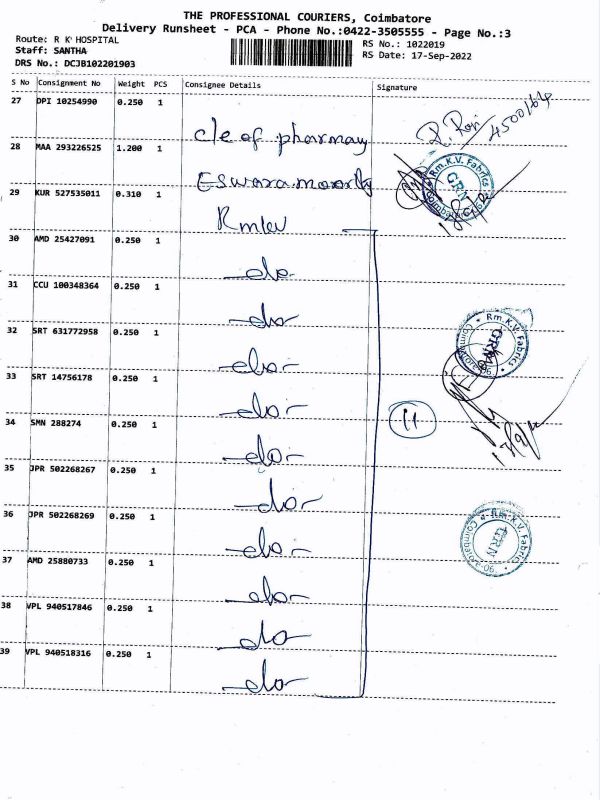 THE PROFESSIONAL COURIERS, Coimbatore
Delivery Runsheet - PCA - Phone No.:0422-3505555 - Page No.:3
Route: R K HOSPITAL
Staff: SANTHA
DRS No.: DCJB102201903
RS No.: 1022019
RS Date: 17-Sep-2022
S No Consignment No Weight PCS Consignee Details Signature
27 DPI 10254990 0.250 1
c/e of pharmay
R. Ravi
28 MAA 293226525 1.200 1
Eswaramoorthy
Rm.K.V. Fabrics
GRN
29 KUR 527535011 0.310 1
Rmkv
30 AMD 25427091 0.250 1
-do-
31 CCU 100348364 0.250 1
-do-
Rm.K.V. Fabrics
GRN
Coimbatore-06.
32 SRT 631772958 0.250 1
-do-
33 SRT 14756178 0.250 1
-do-
11
34 SMN 288274 0.250 1
-do-
35 JPR 502268267 0.250 1
-do-
36 JPR 502268269 0.250 1
-do-
Rm.K.V. Fabrics
GRN
Coimbatore-06.
37 AMD 25880733 0.250 1
-do-
38 VPL 940517846 0.250 1
-do-
39 VPL 940518316 0.250 1
-do-